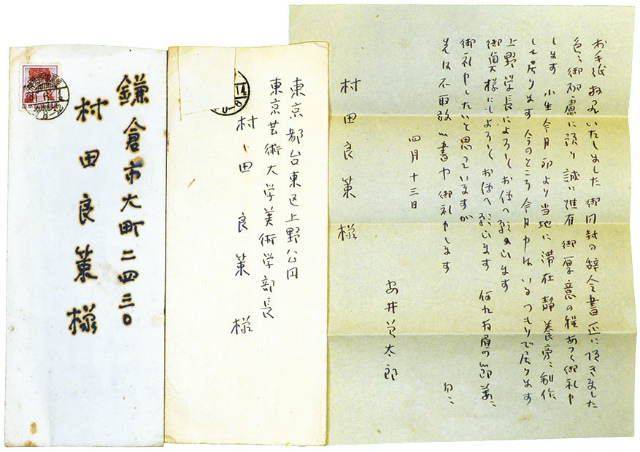 お手紙拝見いたしました 御同封の辞令書正に頂きました
色々御配慮に預り誠に難有 御厚意の程あつく御礼申
します 小生今月初より当地に滞在 静養旁々制作
して居ります 今のところ今月中はいるつもりで居ります
上野学長によろしくお伝へ願ひます
御奥様にもよろしくお伝へ願います 何れお眉の節萬々
御礼申したいと思っていますが
先は不取敢以書中御礼申します 匆々
四月十三日
安井曽太郎
村田良策様
東京都台東区上野公園
東京芸術大学美術学部長
村田良策様
鎌倉市大町二四三〇
村田良策様